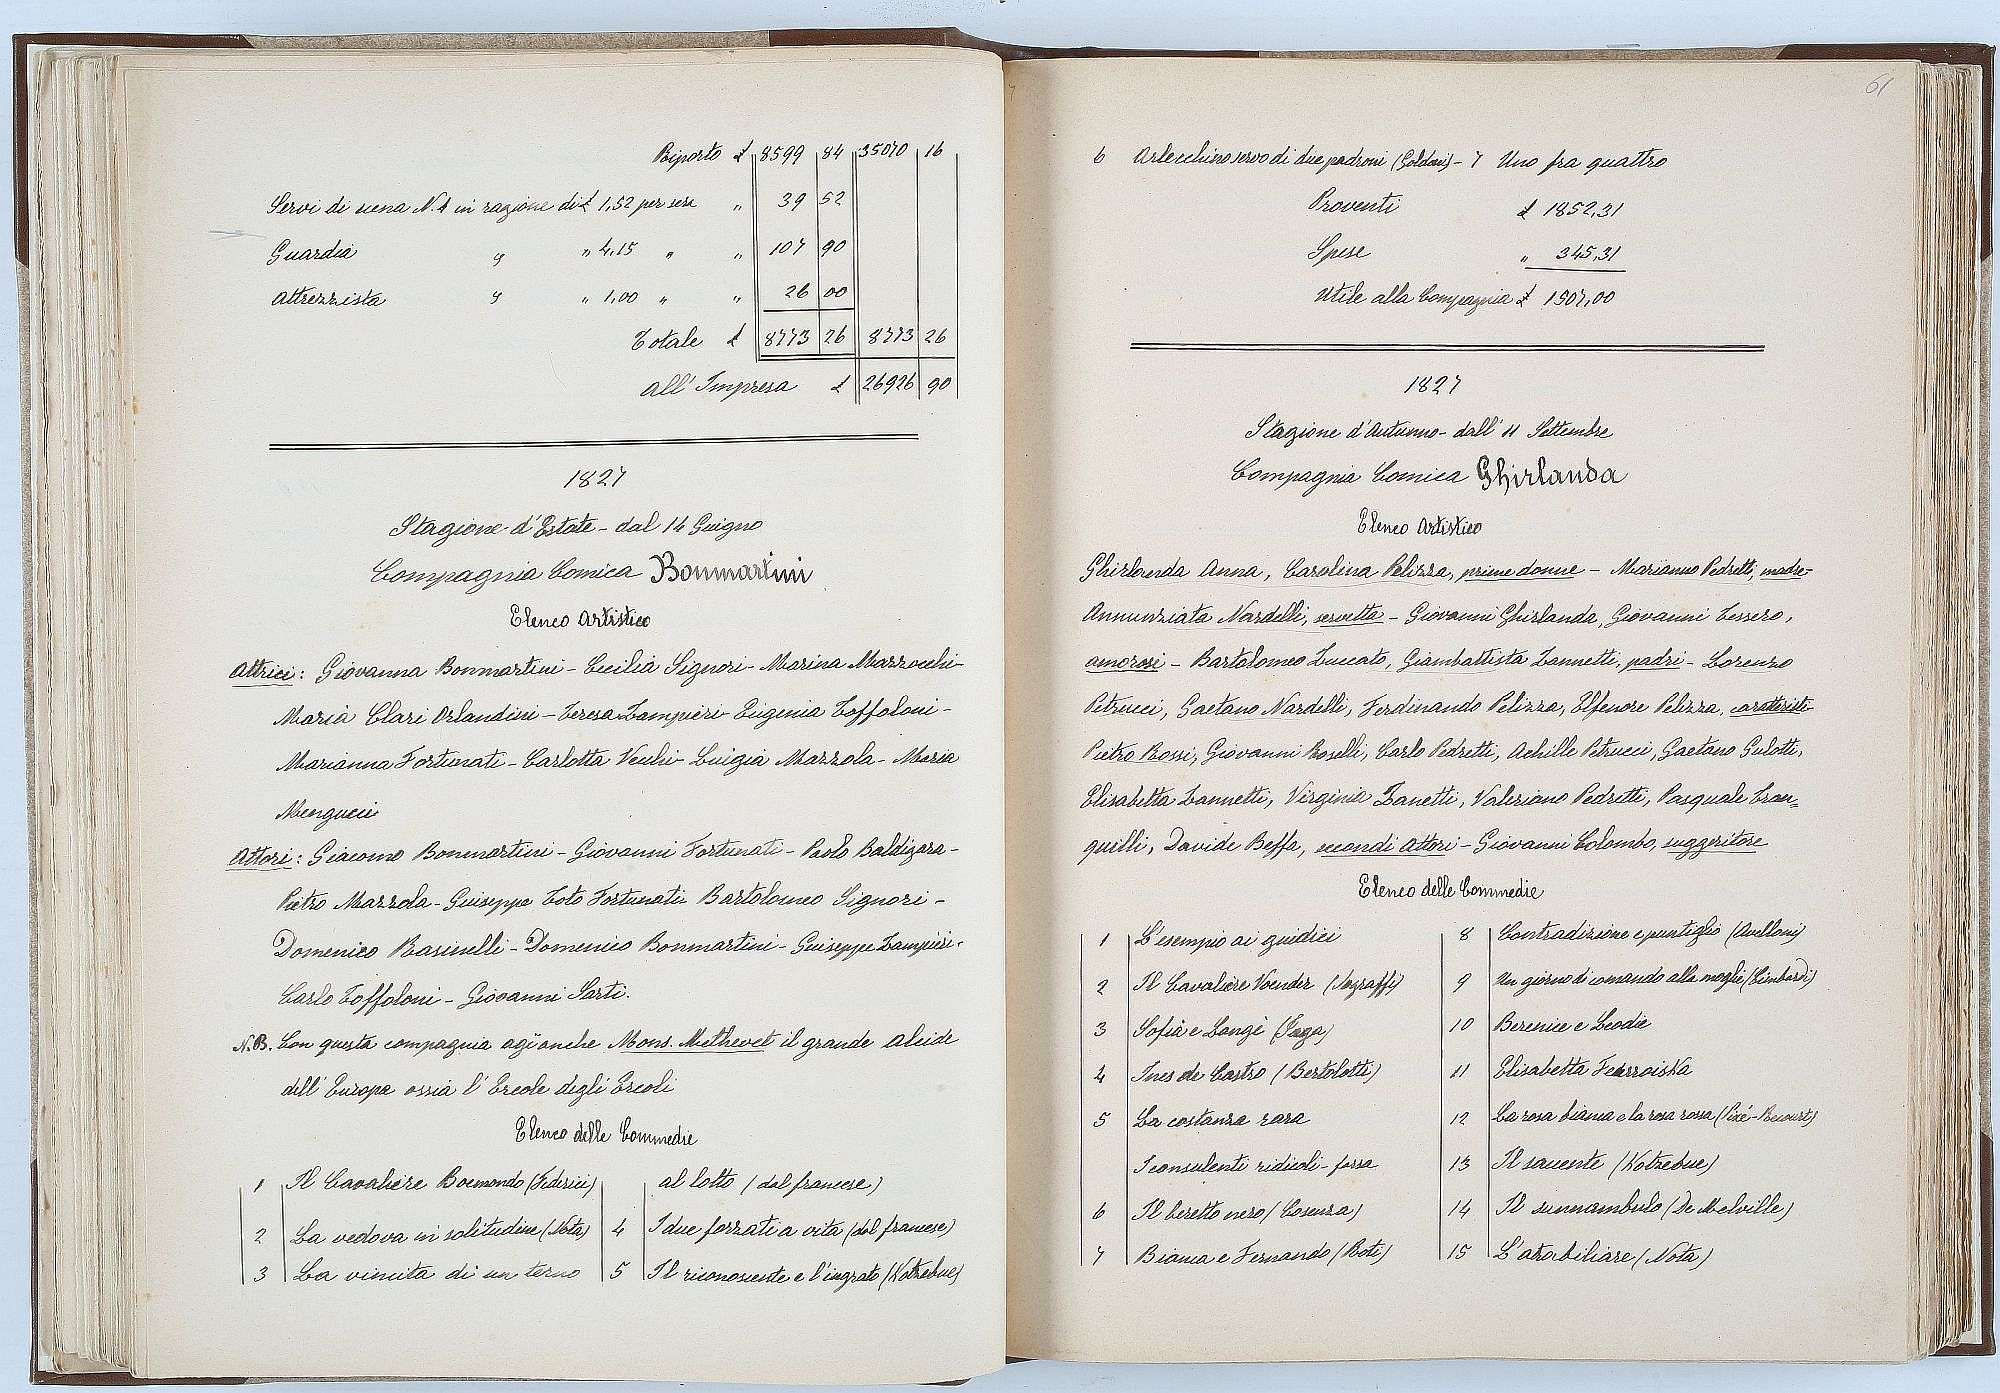 Riporto £ 8599 84 35070 16
Servi di scena N. 4 in ragione di £ 1,52 per sera " 39 52
Guardia " " 4,15 " " 107 90
Attrezzista " " 1,00 " " 26 00
Totale £ 8773 26 8773 26
all' Impresa £ 26926 90
1827
Stagione d'Estate - dal 14 Guigno
Compagnia Comica Bonmartini
Elenco Artistico
Attrici: Giovanna Bonmartini - Cecilia Signori - Marina Mazzocchi -
Maria Clari Orlandini - Teresa Zampieri - Eugenia Toffoloni -
Marianna Fortunati - Carlotta Vecchi - Luigia Mazzola - Maria
Mengucci
Attori: Giacomo Bonmartini - Giovanni Fortunati - Paolo Baldigara -
Pietro Mazzola - Guiseppe Toto Fortunati - Bartolomeo Signori -
Domenico Rasinelli - Domenico Bonmartini - Guiseppe Zampieri -
Carlo Toffoloni - Giovanni Sarti.
N.B. Con questa compagnia agì anche Mons. Methevet il grande Alcide
dell' Europa ossia l' Ercole degli Ercoli
Elenco delle Commedie
1 Il Cavaliere Boemondo (Federici)
2 La vedova in solitudine (Nota)
3 La vincita di un terno
al lotto (dal francese)
4 I due forzati a vita (dal francese)
5 Il riconoscente e l'ingrato (Kotzebue)
61
6 Arlecchino servo di due padroni (Goldoni) - 7 Uno fra quattro
Proventi £ 1852,31
Spese " 345,31
Utile alla Compagnia £ 1507,00
1827
Stagione d'Autunno - dall' 11 Settembre
Compagnia Comica Ghirlanda
Elenco Artistico
Ghirlanda Anna, Carolina Pelizza, prime donne - Marianna Pedretti, madre -
Annunziata Nardelli, servetta - Giovanni Ghirlanda, Giovanni Tessero,
amorosi - Bartolomeo Zuccato, Giambattista Zannetti, padri - Lorenzo
Petrucci, Gaetano Nardelli, Ferdinando Pelizza, Elfenore Pelizza, caratteristi -
Pietro Rossi, Giovanni Boselli, Carlo Pedretti, Achille Petrucci, Gaetano Gulotti,
Elisabetta Zannetti, Virginia Zanetti, Valeriano Pedretti, Pasquale Tran=
quilli, Davide Beffa, secondi Attori - Giovanni Colombo, suggeritore
Elenco delle Commedie
1 L'esempio ai guidici
2 Il Cavaliere Woender (Nograffi)
3 Sofia e Langé
4 Ines de Castro (Bertolotti)
5 La costanza rara
I consulenti ridicoli - farsa
6 Il beretto nero (Cosenza)
7 Bianca e Fernando (Roti)
8 Contradizione e puntiglio (Avelloni)
9 Un giorno di comando alla moglie (Cimbardi)
10 Berenice e Leodie
11 Elisabetta Fearroiska
12 La rosa bianca e la rosa rossa
13 Il saccente (Kotzebue)
14 Il sunnambulo (De Melville)
15 L'atrabiliare (Nota)